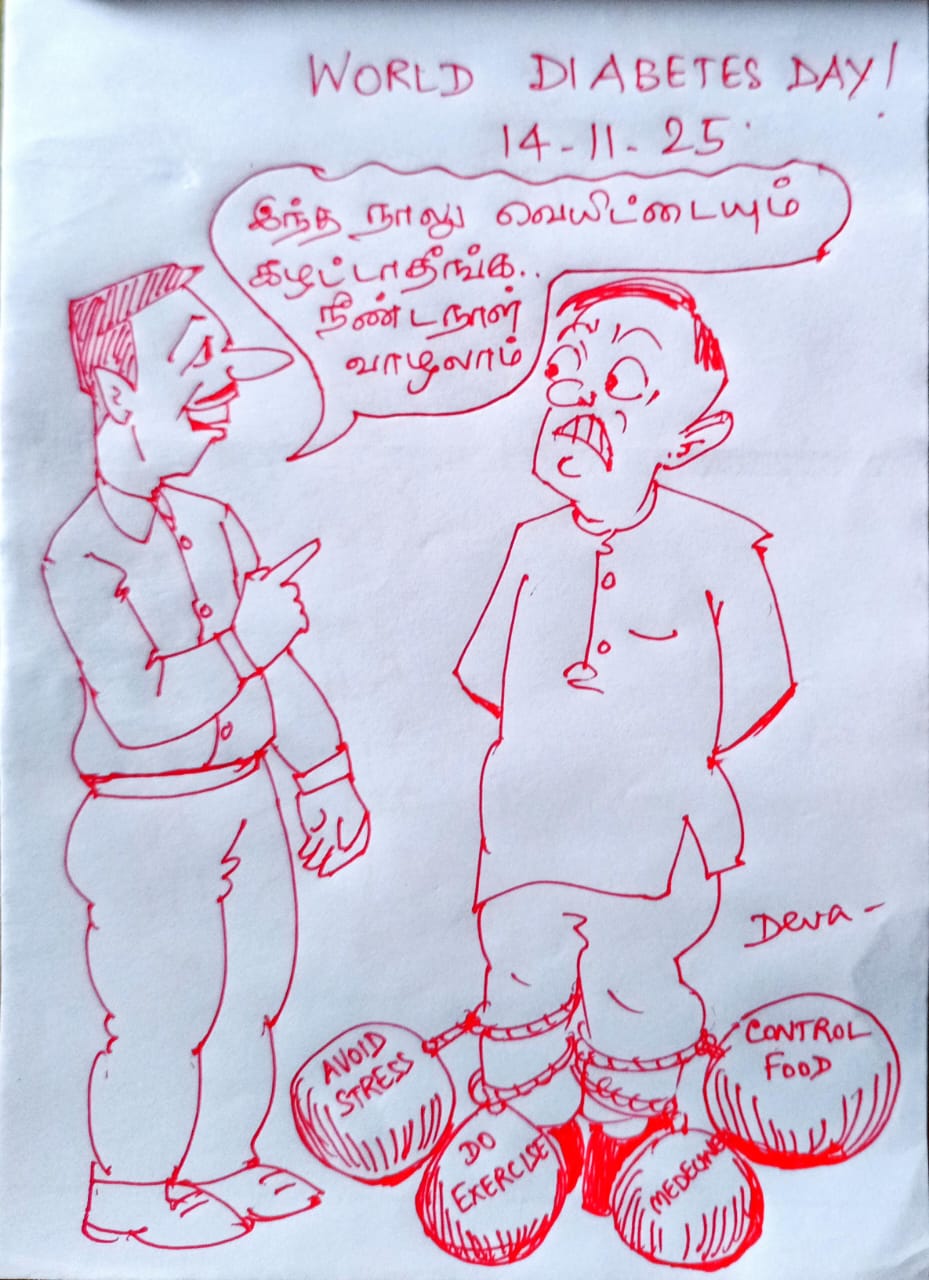 WORLD DIABETES DAY!
14-11-25
இந்த நாலு வெயிட்டையும்
கழட்டாதீங்க..
நீண்டநாள்
வாழலாம்
Deva-
AVOID
STRESS
DO
EXERCISE
MEDECINE
CONTROL
FOOD